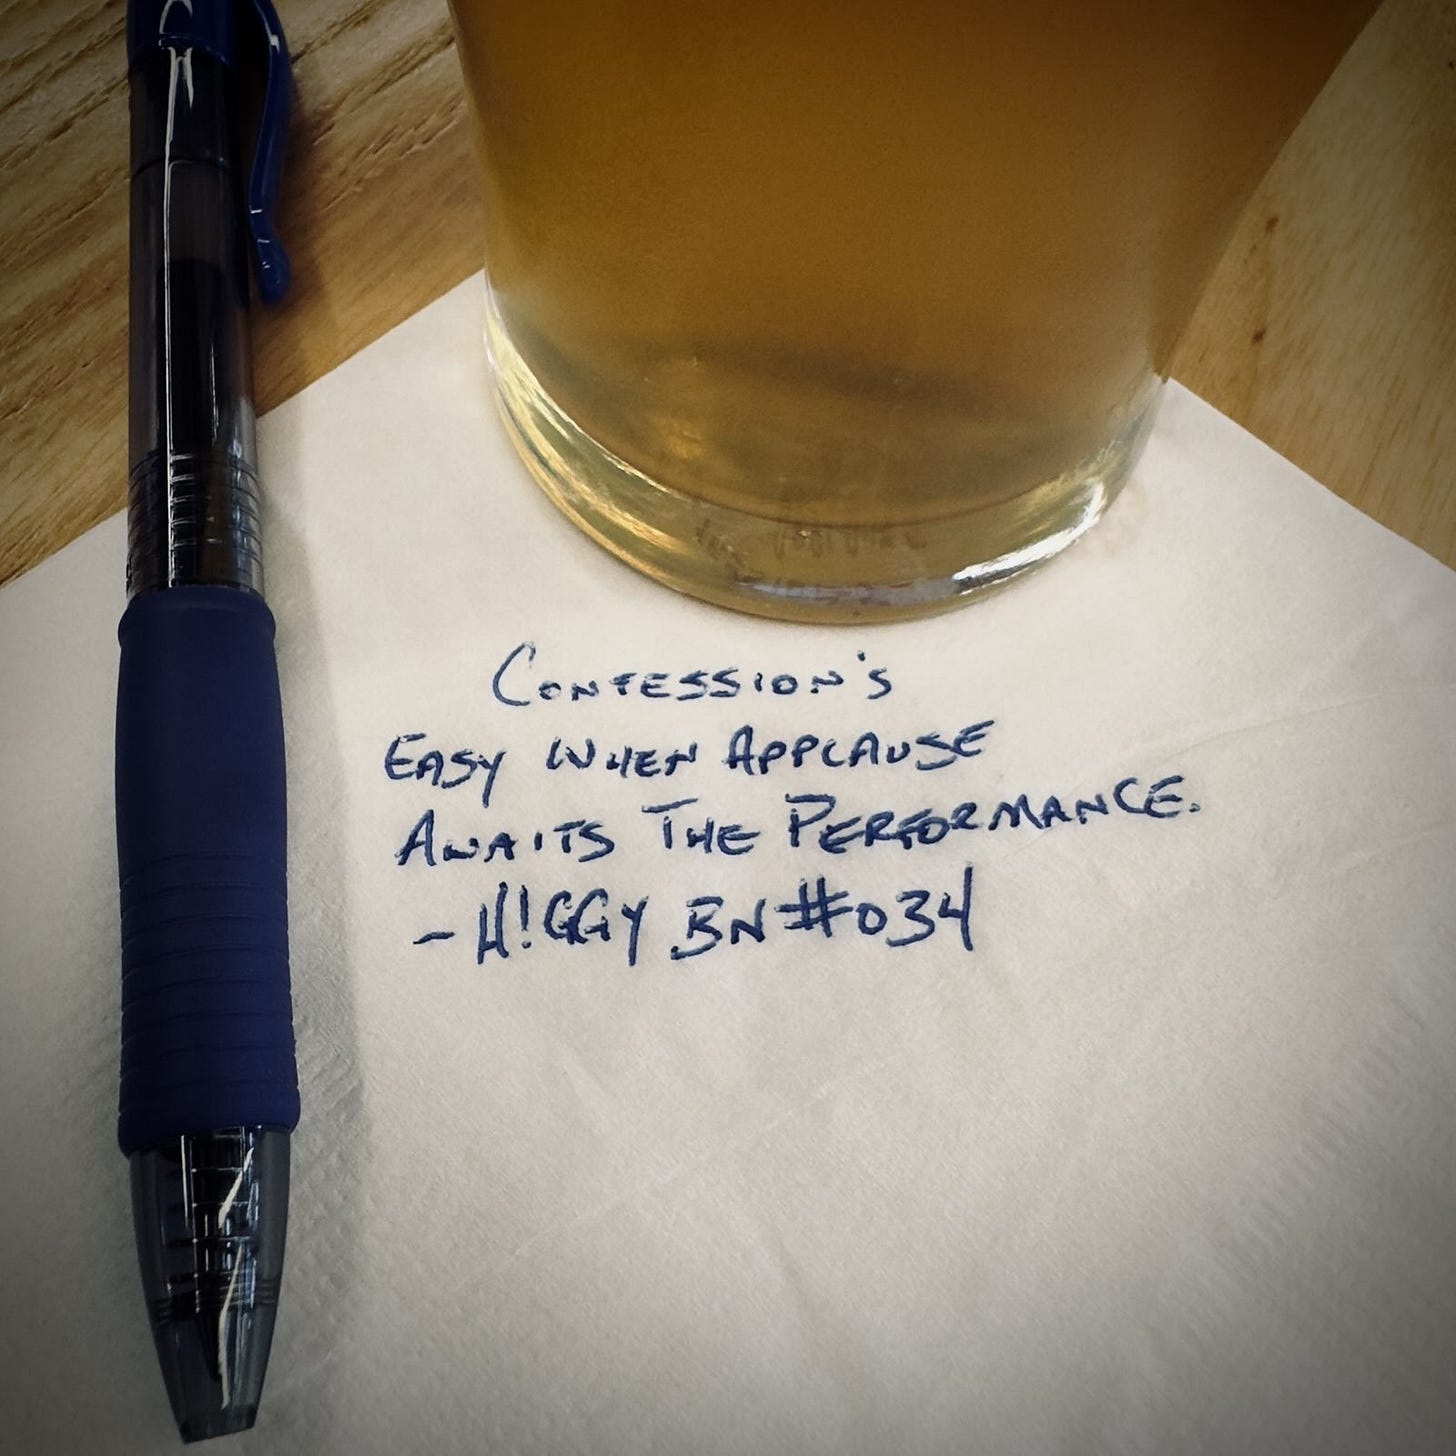 Confession's
Easy When Applause
Awaits The Performance.
- H!GGY BN#034